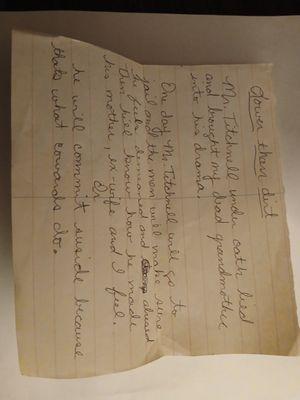 Lower than dirt
Mr. Titchnell under oath lied
and brought my dead grandmother
into his drama.
One day Mr. Titchnell will go to
jail and the men will make sure
he feels demeaned and abused
then he'll know how he made
his mother, ex-wife and I feel.
Or
he will commit suicide because
thats what cowards do.